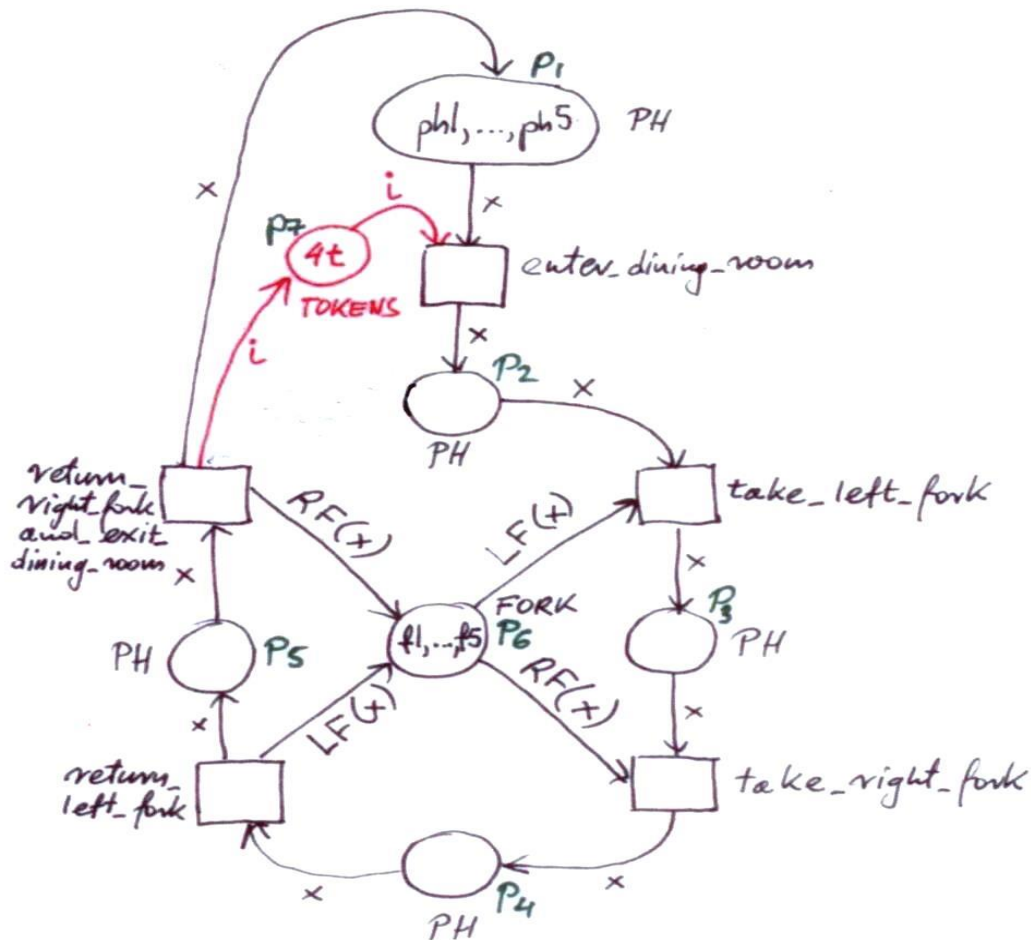 P1
ph1,...,ph5
PH
x
x
i
P7
4t
enter_dining_room
TOKENS
x
i
P2
x
PH
return_
right_fork
and_exit_
dining_room
take_left_fork
RF(x)
LF(x)
x
x
FORK
P3
f1,..,f5
P6
PH
PH
P5
RF(x)
LF(x)
x
x
return_
left_fork
take_right_fork
x
x
P4
PH